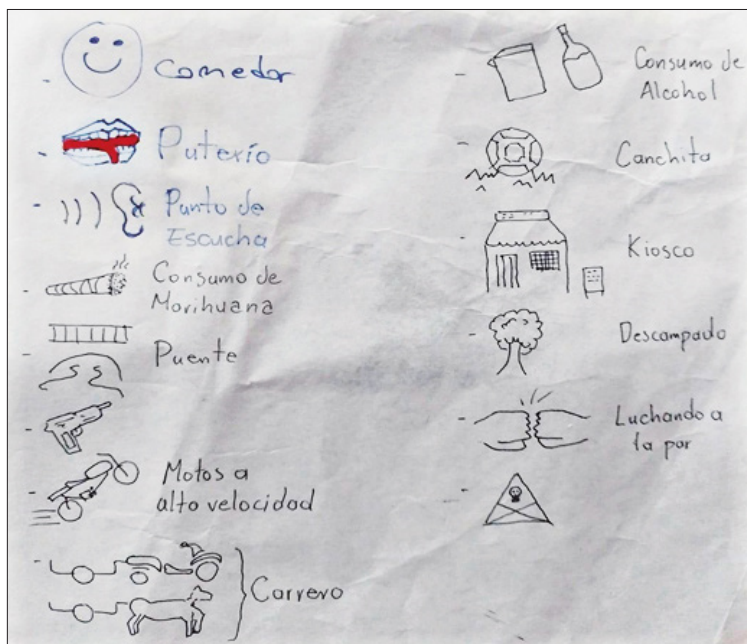 Comedor
Puterío
Punto de
Escucha
Consumo de
Marihuana
Puente
Motos a
alta velocidad
Carrero
Consumo de
Alcohol
Canchita
Kiosco
Descampado
Luchando a
la par